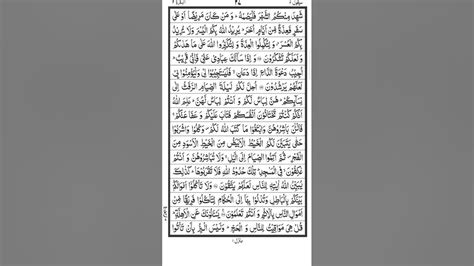 سيقول ٢ ٢٨ البقرة ٢
شَهِدَ مِنْكُمُ الشَّهْرَ فَلْيَصُمْهُ ؕ وَ مَنْ كَانَ مَرِيْضًا اَوْ عَلٰى
سَفَرٍ فَعِدَّةٌ مِّنْ اَيَّامٍ اُخَرَ ؕ يُرِيْدُ اللّٰهُ بِكُمُ الْيُسْرَ وَلَا يُرِيْدُ
بِكُمُ الْعُسْرَ ؗ وَ لِتُكْمِلُوا الْعِدَّةَ وَ لِتُكَبِّرُوا اللّٰهَ عَلٰى مَا هَدٰىكُمْ
وَلَعَلَّكُمْ تَشْكُرُوْنَ ۝ وَ اِذَا سَاَلَكَ عِبَادِيْ عَنِّيْ فَاِنِّيْ قَرِيْبٌ ؕ
اُجِيْبُ دَعْوَةَ الدَّاعِ اِذَا دَعَانِ ۙ فَلْيَسْتَجِيْبُوْا لِيْ وَلْيُؤْمِنُوْا بِيْ
لَعَلَّهُمْ يَرْشُدُوْنَ ۝ اُحِلَّ لَكُمْ لَيْلَةَ الصِّيَامِ الرَّفَثُ اِلٰى
نِسَآئِكُمْ ؕ هُنَّ لِبَاسٌ لَّكُمْ وَ اَنْتُمْ لِبَاسٌ لَّهُنَّ ؕ عَلِمَ اللّٰهُ
اَنَّكُمْ كُنْتُمْ تَخْتَانُوْنَ اَنْفُسَكُمْ فَتَابَ عَلَيْكُمْ وَ عَفَا عَنْكُمْ ۚ
فَالْـٰٔنَ بَاشِرُوْهُنَّ وَ ابْتَغُوْا مَا كَتَبَ اللّٰهُ لَكُمْ ۪ وَكُلُوْا وَاشْرَبُوْا
حَتّٰى يَتَبَيَّنَ لَكُمُ الْخَيْطُ الْاَبْيَضُ مِنَ الْخَيْطِ الْاَسْوَدِ مِنَ
الْفَجْرِ ۪ ثُمَّ اَتِمُّوا الصِّيَامَ اِلَى الَّيْلِ ۚ وَلَا تُبَاشِرُوْهُنَّ وَ اَنْتُمْ
عٰكِفُوْنَ ۙ فِي الْمَسٰجِدِ ؕ تِلْكَ حُدُوْدُ اللّٰهِ فَلَا تَقْرَبُوْهَا ؕ كَذٰلِكَ
يُبَيِّنُ اللّٰهُ اٰيٰتِهٖ لِلنَّاسِ لَعَلَّهُمْ يَتَّقُوْنَ ۝ وَلَا تَاْكُلُوْۤا اَمْوَالَكُمْ
بَيْنَكُمْ بِالْبَاطِلِ وَتُدْلُوْا بِهَاۤ اِلَى الْحُكَّامِ لِتَاْكُلُوْا فَرِيْقًا مِّنْ
اَمْوَالِ النَّاسِ بِالْاِثْمِ وَ اَنْتُمْ تَعْلَمُوْنَ ۝ يَسْـَٔلُوْنَكَ عَنِ الْاَهِلَّةِ ؕ
قُلْ هِيَ مَوَاقِيْتُ لِلنَّاسِ وَ الْحَجِّ ؕ وَلَيْسَ الْبِرُّ بِاَنْ تَاْتُوا
منزل ١